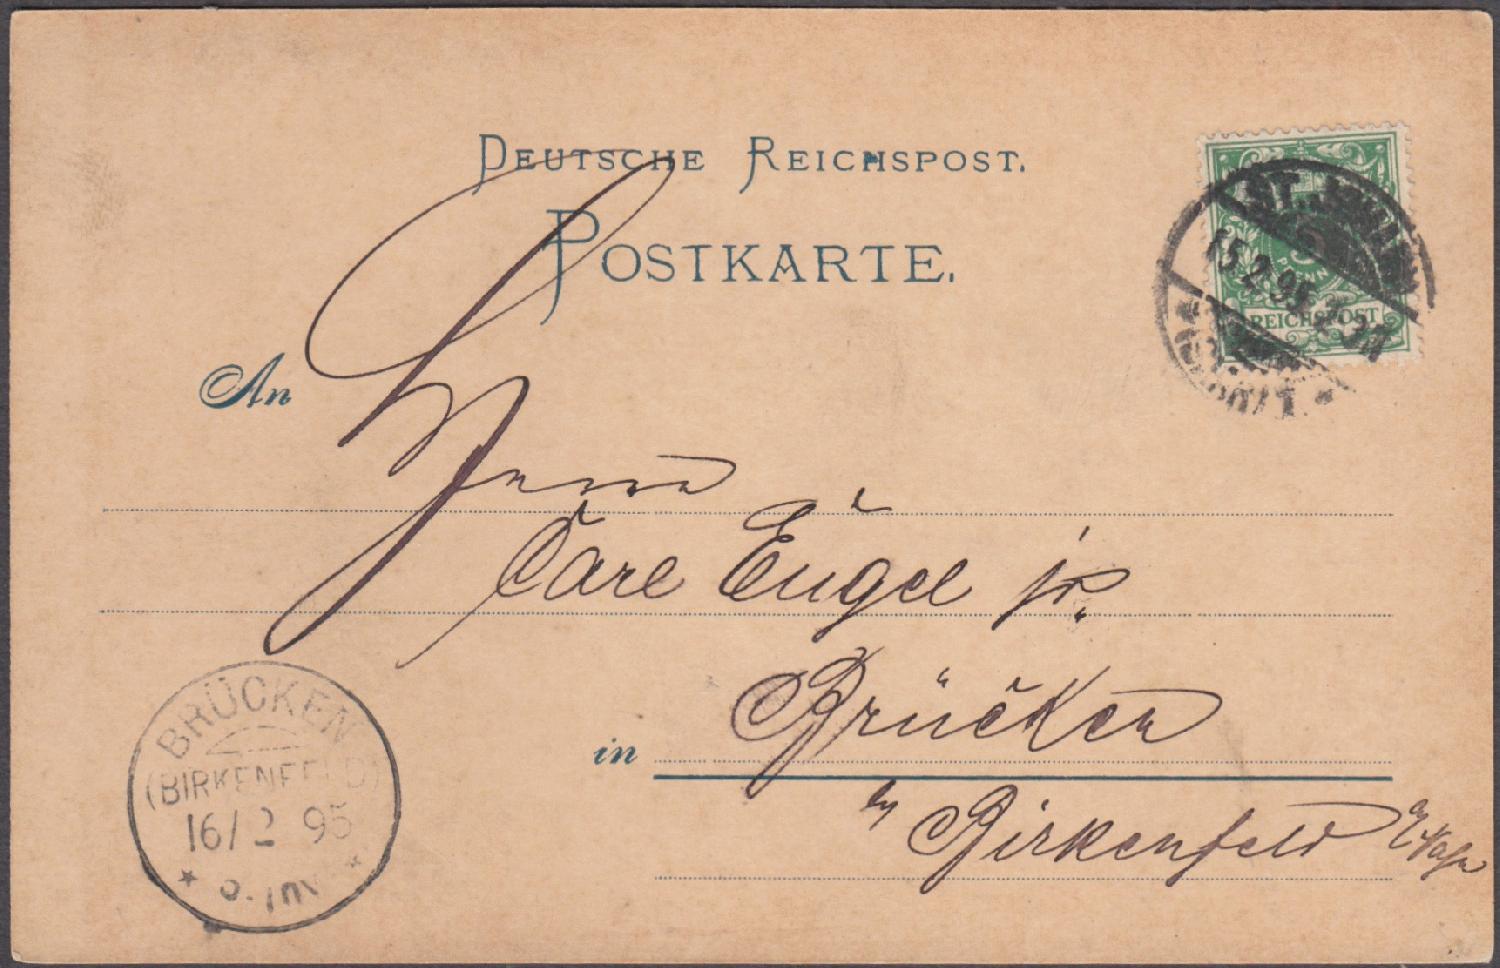 DEUTSCHE REICHSPOST.
POSTKARTE.
ST. JOHANN
15.2.95
PFENNIG
REICHSPOST
An
Herrn
Carl Engel jr.
in Brücken
by Birkenfeld a/Nahe
BRÜCKEN
(BIRKENFELD)
16/2 95